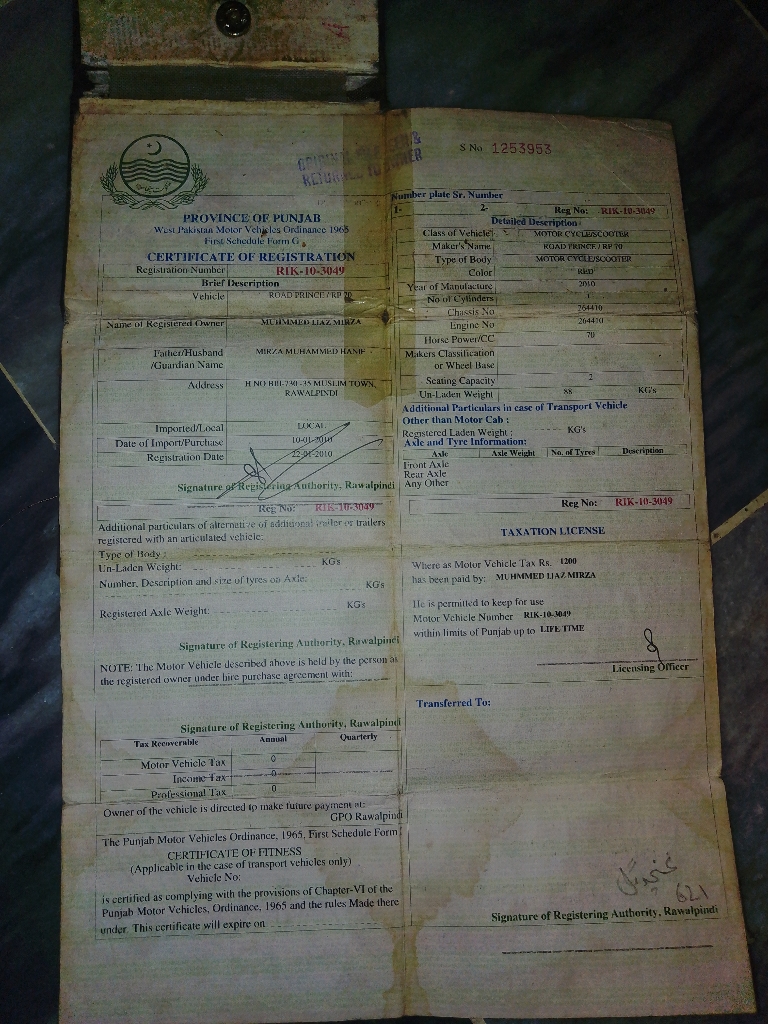 ORIGINAL
RETURNED TO OWNER
S No 1253953
PROVINCE OF PUNJAB
West Pakistan Motor Vehicles Ordinance 1965
First Schedule Form G
CERTIFICATE OF REGISTRATION
Registration Number RIK-10-3049
Brief Description
Vehicle ROAD PRINCE / RP 70
Name of Registered Owner MUHMMED IJAZ MIRZA
Father/Husband MIRZA MUHAMMED HANIF
/Guardian Name
Address H NO BIII-730 -35 MUSLIM TOWN,
RAWALPINDI
Imported/Local LOCAL
Date of Import/Purchase 10-01-2010
Registration Date 22-01-2010
Signature of Registering Authority, Rawalpindi
Reg No: RIK-10-3049
Additional particulars of alternative of additional trailer or trailers
registered with an articulated vehicle:
Type of Body :
Un-Laden Weight: KG's
Number, Description and size of tyres on Axle: KG's
Registered Axle Weight: KG's
Signature of Registering Authority, Rawalpindi
NOTE: The Motor Vehicle described above is held by the person as
the registered owner under hire purchase agreement with:
Signature of Registering Authority, Rawalpindi
Tax Recoverable Annual Quarterly
Motor Vehicle Tax 0
Income Tax 0
Professional Tax 0
Owner of the vehicle is directed to make future payment at:
GPO Rawalpindi
The Punjab Motor Vehicles Ordinance, 1965, First Schedule Form
CERTIFICATE OF FITNESS
(Applicable in the case of transport vehicles only)
Vehicle No:
is certified as complying with the provisions of Chapter-VI of the
Punjab Motor Vehicles, Ordinance, 1965 and the rules Made there
under. This certificate will expire on
Number plate Sr. Number
1- 2- Reg No: RIK-10-3049
Detailed Description
Class of Vehicle MOTOR CYCLE/SCOOTER
Maker's Name ROAD PRINCE / RP 70
Type of Body MOTOR CYCLE/SCOOTER
Color RED
Year of Manufacture 2010
No of Cylinders 1
Chassis No 264410
Engine No 264410
Horse Power/CC 70
Makers Classification
or Wheel Base
Seating Capacity 2
Un-Laden Weight 88 KG's
Additional Particulars in case of Transport Vehicle
Other than Motor Cab :
Registered Laden Weight : KG's
Axle and Tyre Information:
Axle Axle Weight No. of Tyres Description
Front Axle
Rear Axle
Any Other
Reg No: RIK-10-3049
TAXATION LICENSE
Where as Motor Vehicle Tax Rs. 1200
has been paid by: MUHMMED IJAZ MIRZA
He is permitted to keep for use
Motor Vehicle Number RIK-10-3049
within limits of Punjab up to LIFE TIME
Licensing Officer
Transferred To:
621
Signature of Registering Authority, Rawalpindi